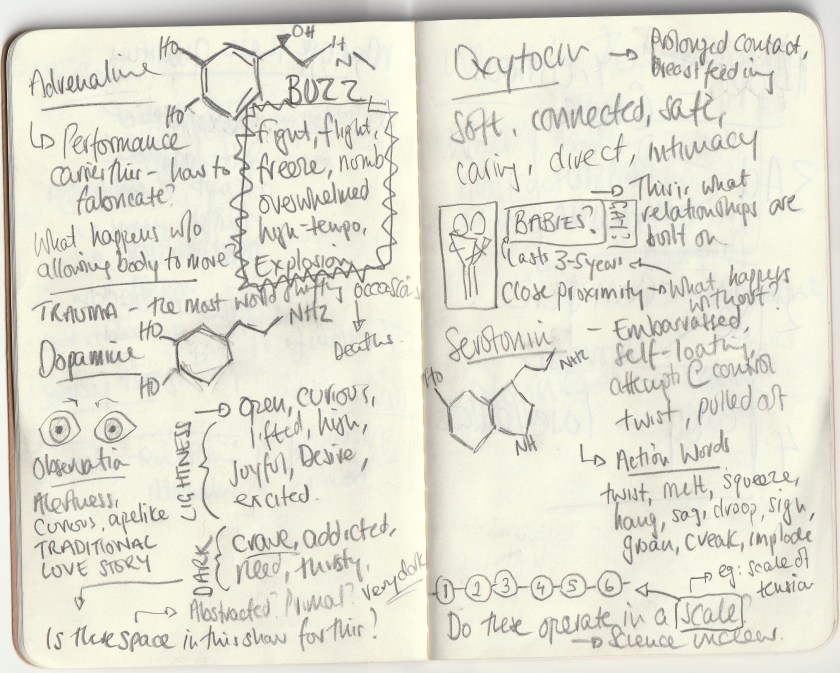 Adrenaline
HO
HO
OH
H
N
BUZZ
↳ Performance
carrier this - how to
fabricate?
What happens w/o
allowing body to move
fight, flight,
freeze, nomb
overwhelmed
high-tempo,
Explosion
TRAUMA - the most world shifting occassions
Deaths.
Dopamine
HO
HO
NH2
Observation
Alertness,
curious, apelike
TRADITIONAL
LOVE STORY
LIGHTNESS
→ open, curious,
lifted, high,
Joyful, Desire,
excited.
DARK
crave, addicted,
need, thirsty,
very dark
Abstracted? Primal?
Is there space in this show for this?
Oxytocin → Prolonged contact,
breastfeeding
Soft, connected, safe,
caring, direct, intimacy
→ This is what
relationships are
built on.
BABIES?
Lasts 3-5 years
Close proximity → What happens
without?
Serotonin
HO
NH2
NH
- Embarrassed,
Self-loating,
attempt @ control
twist, pulled at
↳ Action Words
twist, melt, squeeze,
hang, sag, droop, sigh,
groan, creak, implode
1 - 2 - 3 - 4 - 5 - 6
eg: scale of
tension
Do these operate in a scale
→ Science unclear.